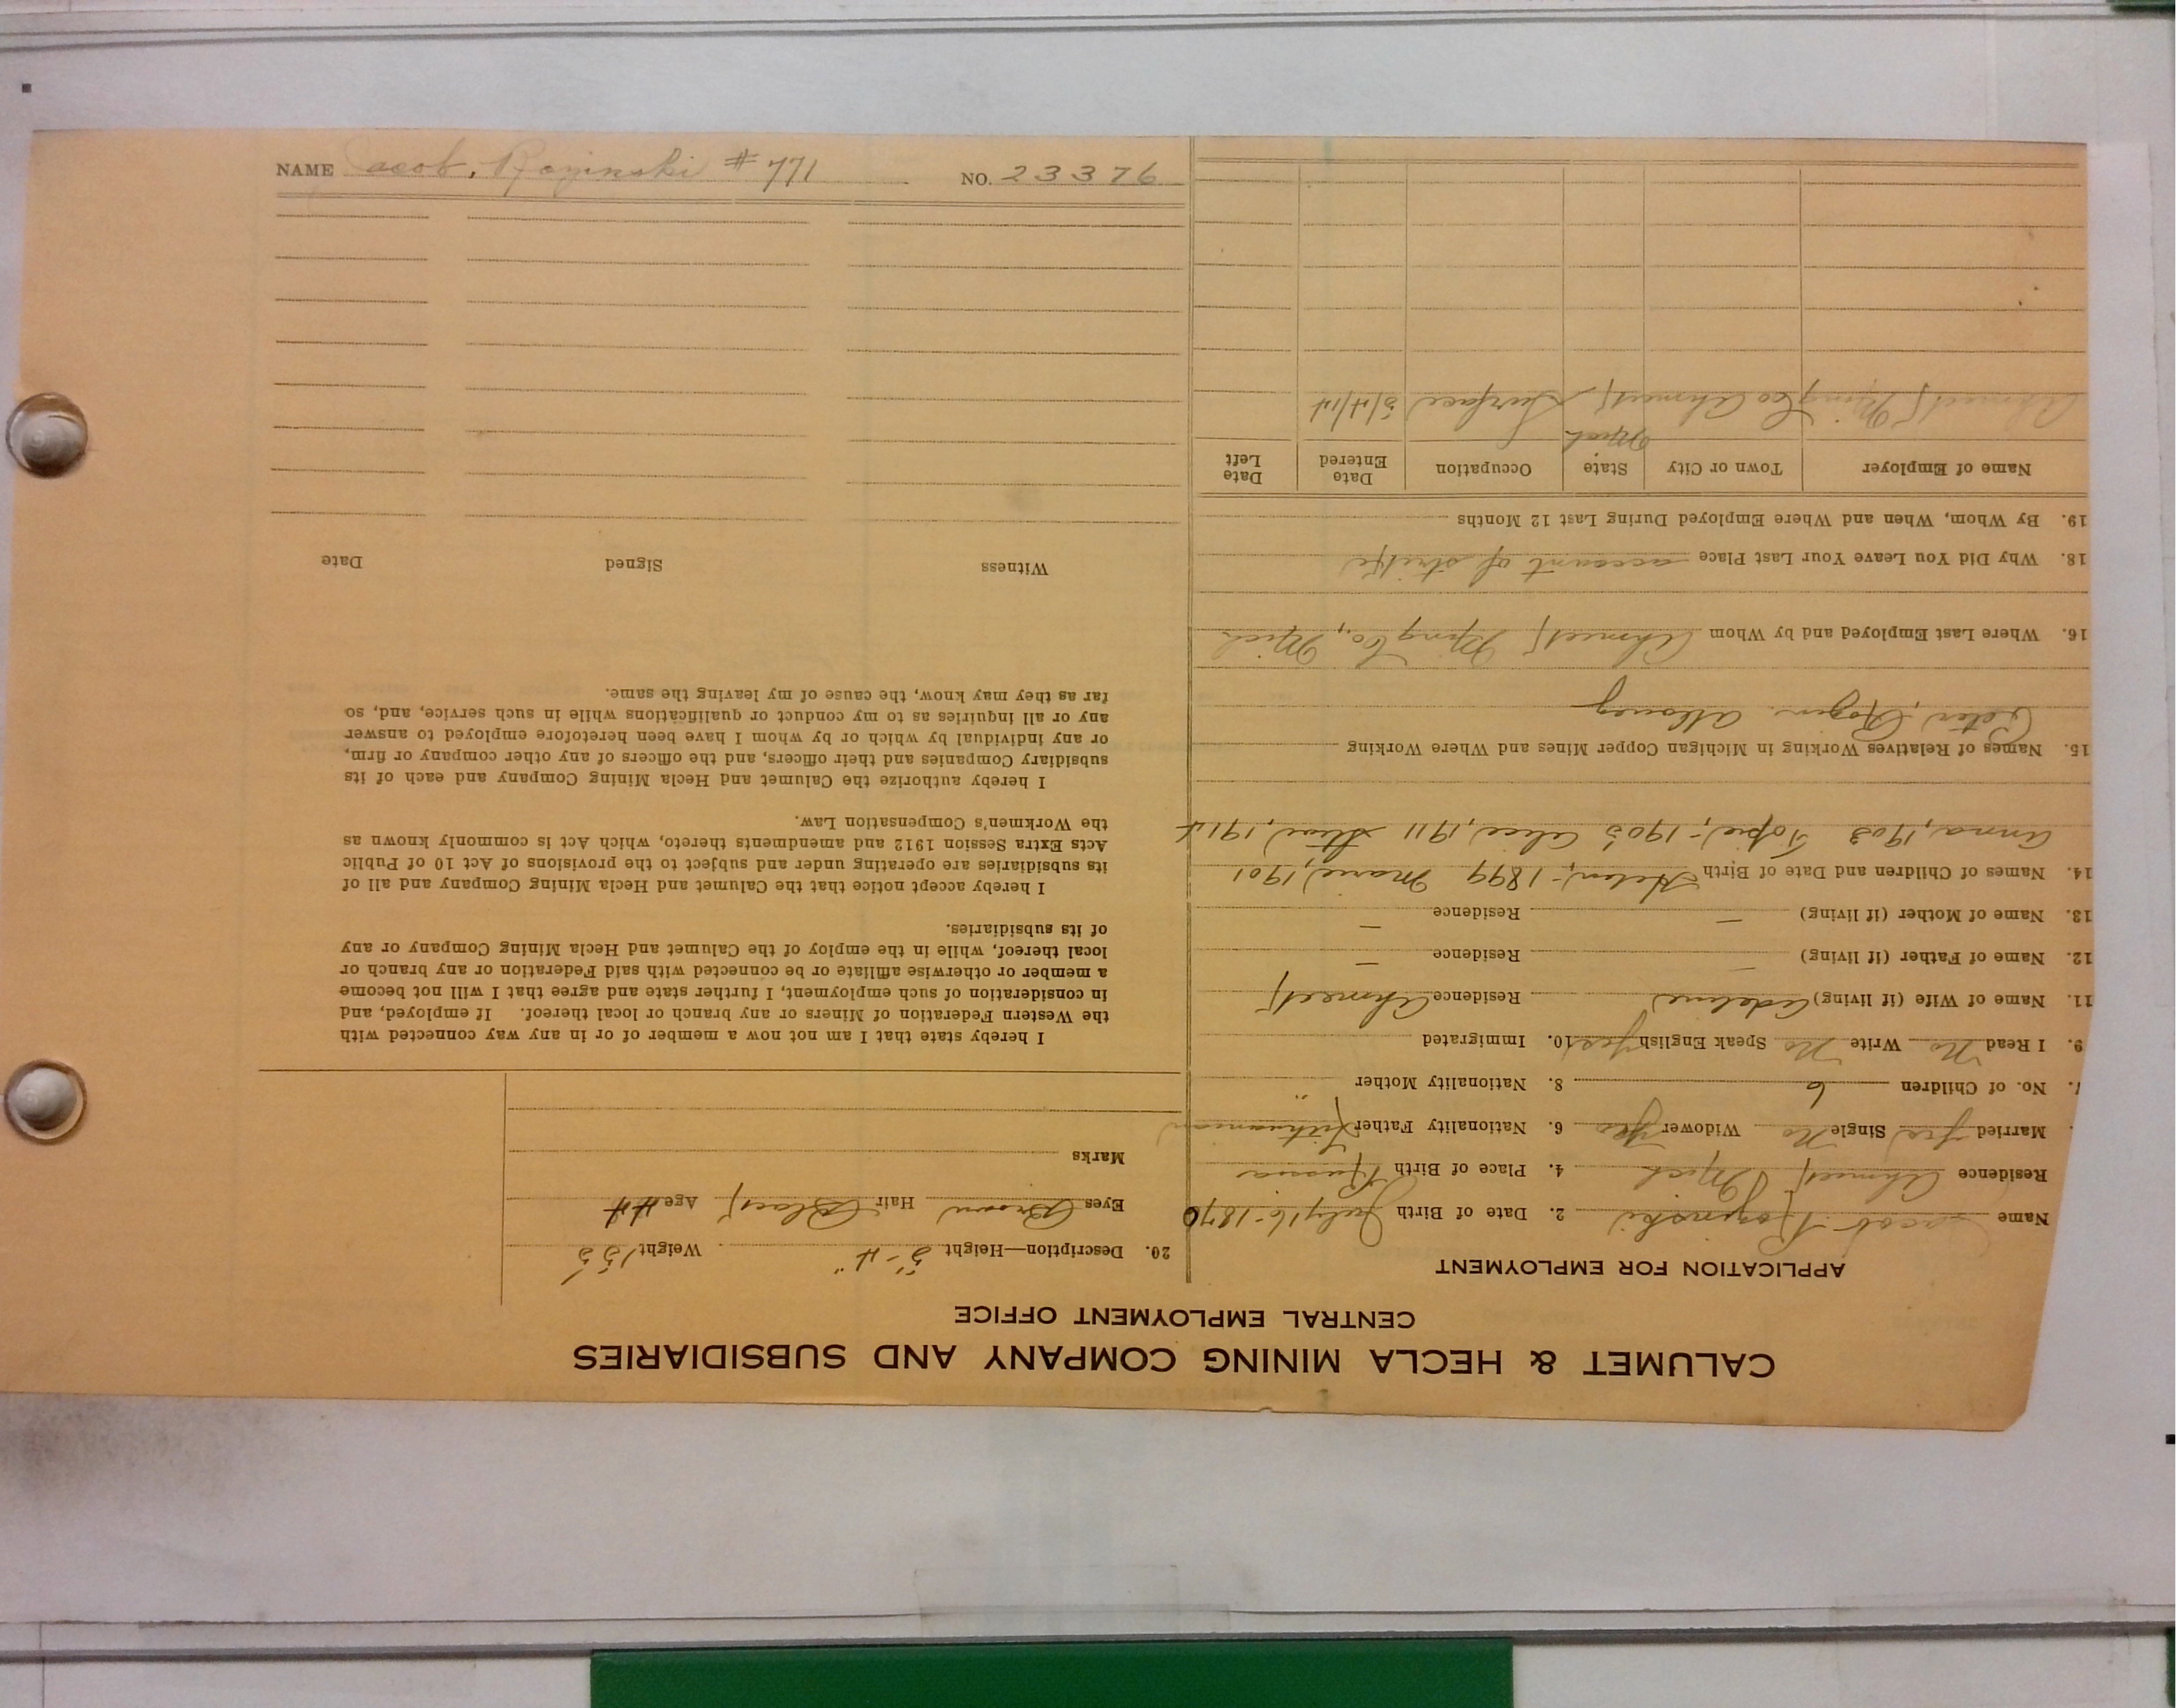 CALUMET & HECLA MINING COMPANY AND SUBSIDIARIES
CENTRAL EMPLOYMENT OFFICE
APPLICATION FOR EMPLOYMENT
Name Jacob Rozinski 2. Date of Birth July 16-1870
Residence Ahmeek Mich 4. Place of Birth Russia
Married yes Single No Widower yes 6. Nationality Father Lithuanian
7. No. of Children 6 8. Nationality Mother "
9. I Read No Write No Speak English yes 10. Immigrated
11. Name of Wife (if living) Adeline Residence Ahmeek
12. Name of Father (if living) — Residence —
13. Name of Mother (if living) — Residence —
14. Names of Children and Date of Birth Helen, - 1899 Marie, 1901
Anna, 1903 Sopie, - 1905 Alice, 1911 1914
15. Names of Relatives Working in Michigan Copper Mines and Where Working
Peter, Rozin. Allouez
16. Where Last Employed and by Whom Ahmeek Mining Co., Mich
18. Why Did You Leave Your Last Place account of strike
19. By Whom, When and Where Employed During Last 12 Months
Name of Employer Town or City State Occupation Date Entered Date Left
Ahmeek Ming Co Ahmeek Mich Surface 5/4/14
20. Description—Height 5'-4" Weight 155
Eyes Brown Hair Black Age 44
Marks
I hereby state that I am not now a member of or in any way connected with
the Western Federation of Miners or any branch or local thereof. If employed, and
in consideration of such employment, I further state and agree that I will not become
a member or otherwise affiliate or be connected with said Federation or any branch or
local thereof, while in the employ of the Calumet and Hecla Mining Company or any
of its subsidiaries.
I hereby accept notice that the Calumet and Hecla Mining Company and all of
its subsidiaries are operating under and subject to the provisions of Act 10 of Public
Acts Extra Session 1912 and amendments thereto, which Act is commonly known as
the Workmen's Compensation Law.
I hereby authorize the Calumet and Hecla Mining Company and each of its
subsidiary Companies and their officers, and the officers of any other company or firm,
or any individual by which or by whom I have been heretofore employed to answer
any or all inquiries as to my conduct or qualifications while in such service, and, so
far as they may know, the cause of my leaving the same.
Witness Signed Date
NAME Jacob, Rozinski # 771 NO. 23376